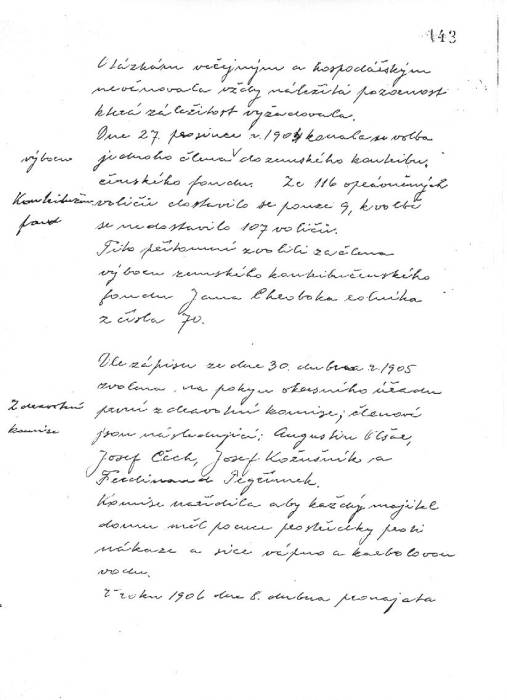 143
Otázkám veřejným a hospodářským
nevěnovala vždy náležitá pozornost
která záležitost vyžadovala.
Dne 27 prosince r. 1904 konala se volba
jednoho člena výboru do zemského kontribu.
čenského fondu. Ze 116 oprávněných
Kontribuční
fond
voličů dostavilo se pouze 9, k volbě
se nedostavilo 107 voličů.
Tito přítomní zvolili za člena
výboru zemského kontribučenského
fondu Jana Chroboka rolníka
z čísla 70.
Dle zápisu ze dne 30. dubna r. 1905
zvolena na pokyn okresního úřadu
Zdravotní
komise
první zdravotní komise; členové
jsou následující: Augustin Olšar,
Josef Čech, Josef Kožušník a
Ferdinand
Komise nařídila aby každý majitel
domu měl po ruce prostředky proti
nákaze a sice vápno a karbolovou
vodu.
V roku 1906 dne 8. dubna pronajata